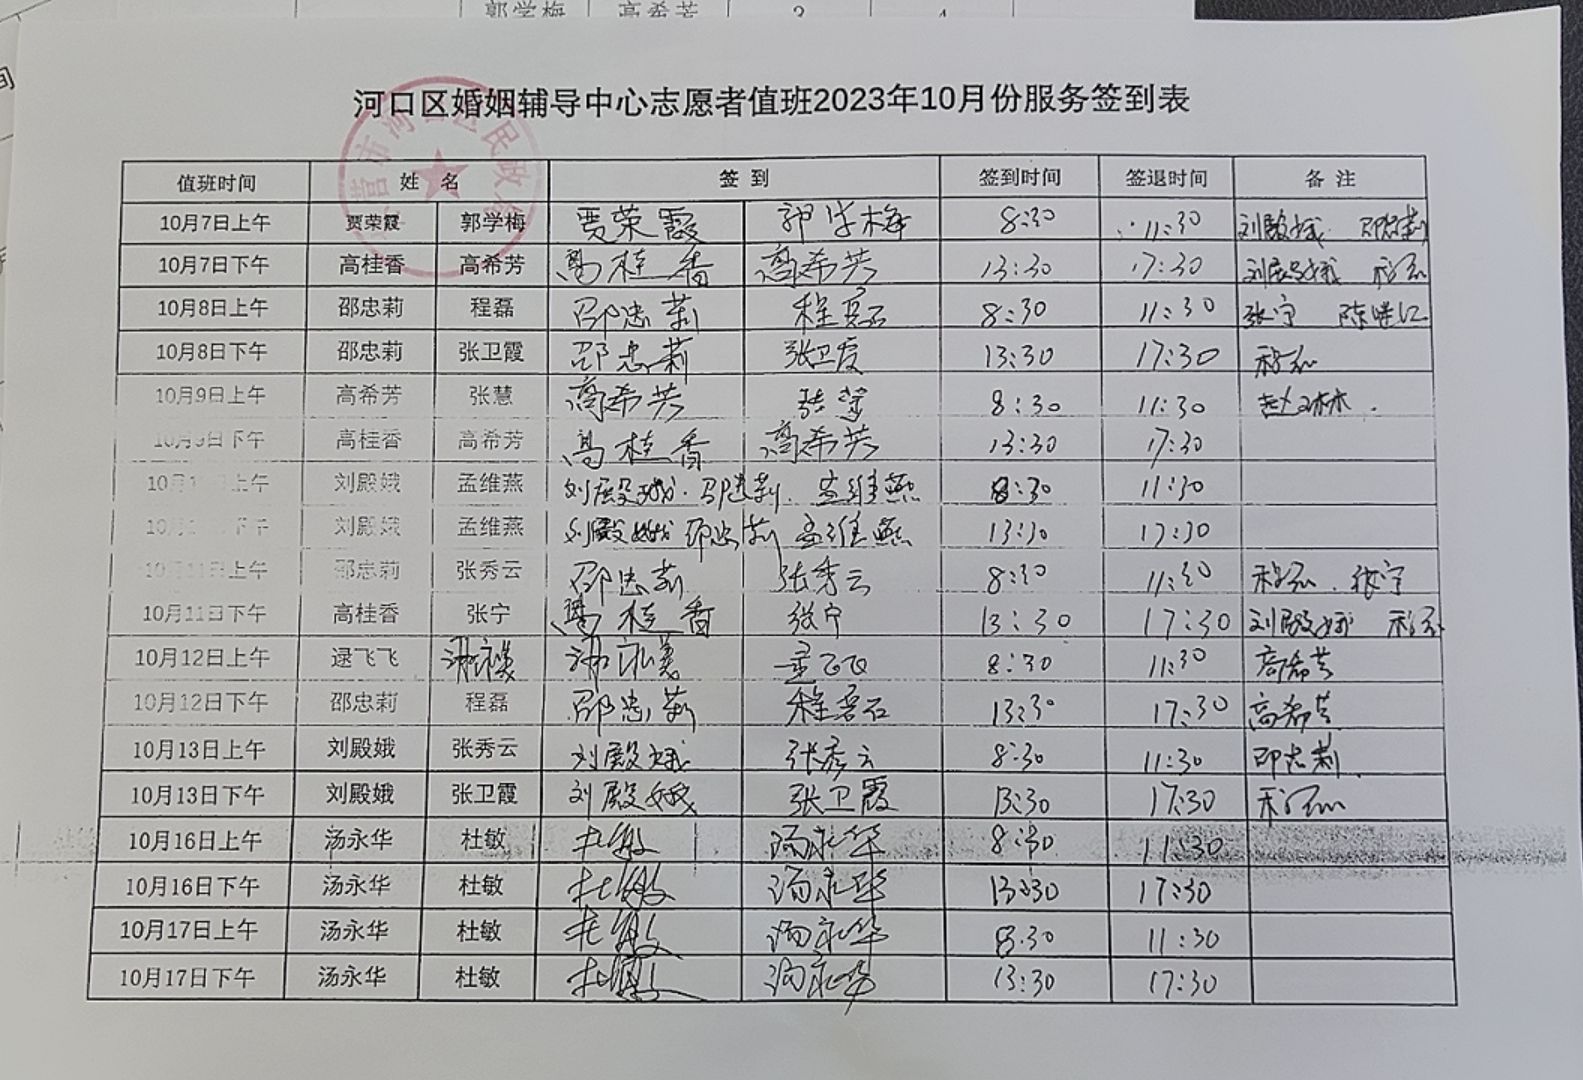 郭学梅 高希芳 3 4
河口区婚姻辅导中心志愿者值班2023年10月份服务签到表
值班时间 姓 名 签 到 签到时间 签退时间 备 注
10月7日上午 贾荣霞 郭学梅 贾荣霞 郭学梅 8:30 11:30 刘殿娥 邵忠莉
10月7日下午 高桂香 高希芳 高桂香 高希芳 13:30 17:30 刘殿娥
10月8日上午 邵忠莉 程磊 邵忠莉 程磊 8:30 11:30 张宁
10月8日下午 邵忠莉 张卫霞 邵忠莉 张卫霞 13:30 17:30
10月9日上午 高希芳 张慧 高希芳 张慧 8:30 11:30
10月9日下午 高桂香 高希芳 高桂香 高希芳 13:30 17:30
上午 刘殿娥 孟维燕 刘殿娥 邵忠莉 孟维燕 8:30 11:30
下午 刘殿娥 孟维燕 刘殿娥 邵忠莉 孟维燕 13:30 17:30
10月11日上午 邵忠莉 张秀云 邵忠莉 张秀云 8:30 11:30 张宁
10月11日下午 高桂香 张宁 高桂香 张宁 13:30 17:30 刘殿娥
10月12日上午 逯飞飞 8:30 11:30 高希芳
10月12日下午 邵忠莉 程磊 邵忠莉 程磊 13:30 17:30 高希芳
10月13日上午 刘殿娥 张秀云 刘殿娥 张秀云 8:30 11:30 邵忠莉
10月13日下午 刘殿娥 张卫霞 刘殿娥 张卫霞 13:30 17:30
10月16日上午 汤永华 杜敏 杜敏 汤永华 8:30 11:30
10月16日下午 汤永华 杜敏 杜敏 汤永华 13:30 17:30
10月17日上午 汤永华 杜敏 杜敏 汤永华 8:30 11:30
10月17日下午 汤永华 杜敏 杜敏 汤永华 13:30 17:30